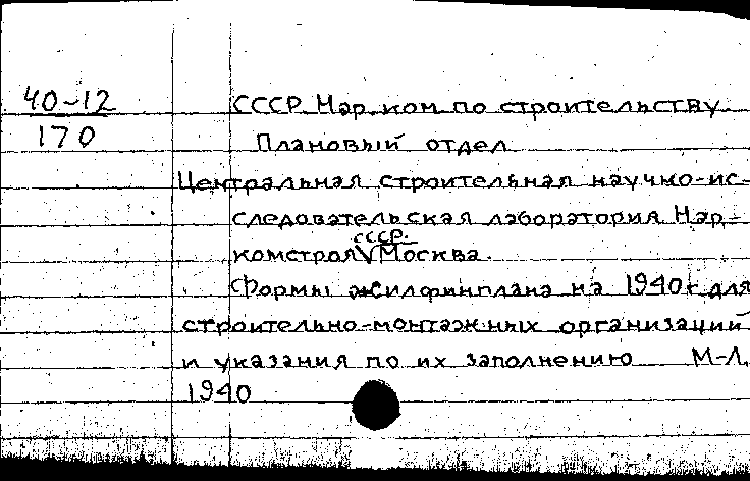 40-12
170
СССР Нар. ком по строительству
Плановый отдел
Центральная строительная научно-ис-
следовательская лаборатория Нар-
СССР.
комстроя Москва.
Формы жилфинплана на 1940 г. для
строительно-монтажных организаций
и указания по их заполнению М-Л,
1940